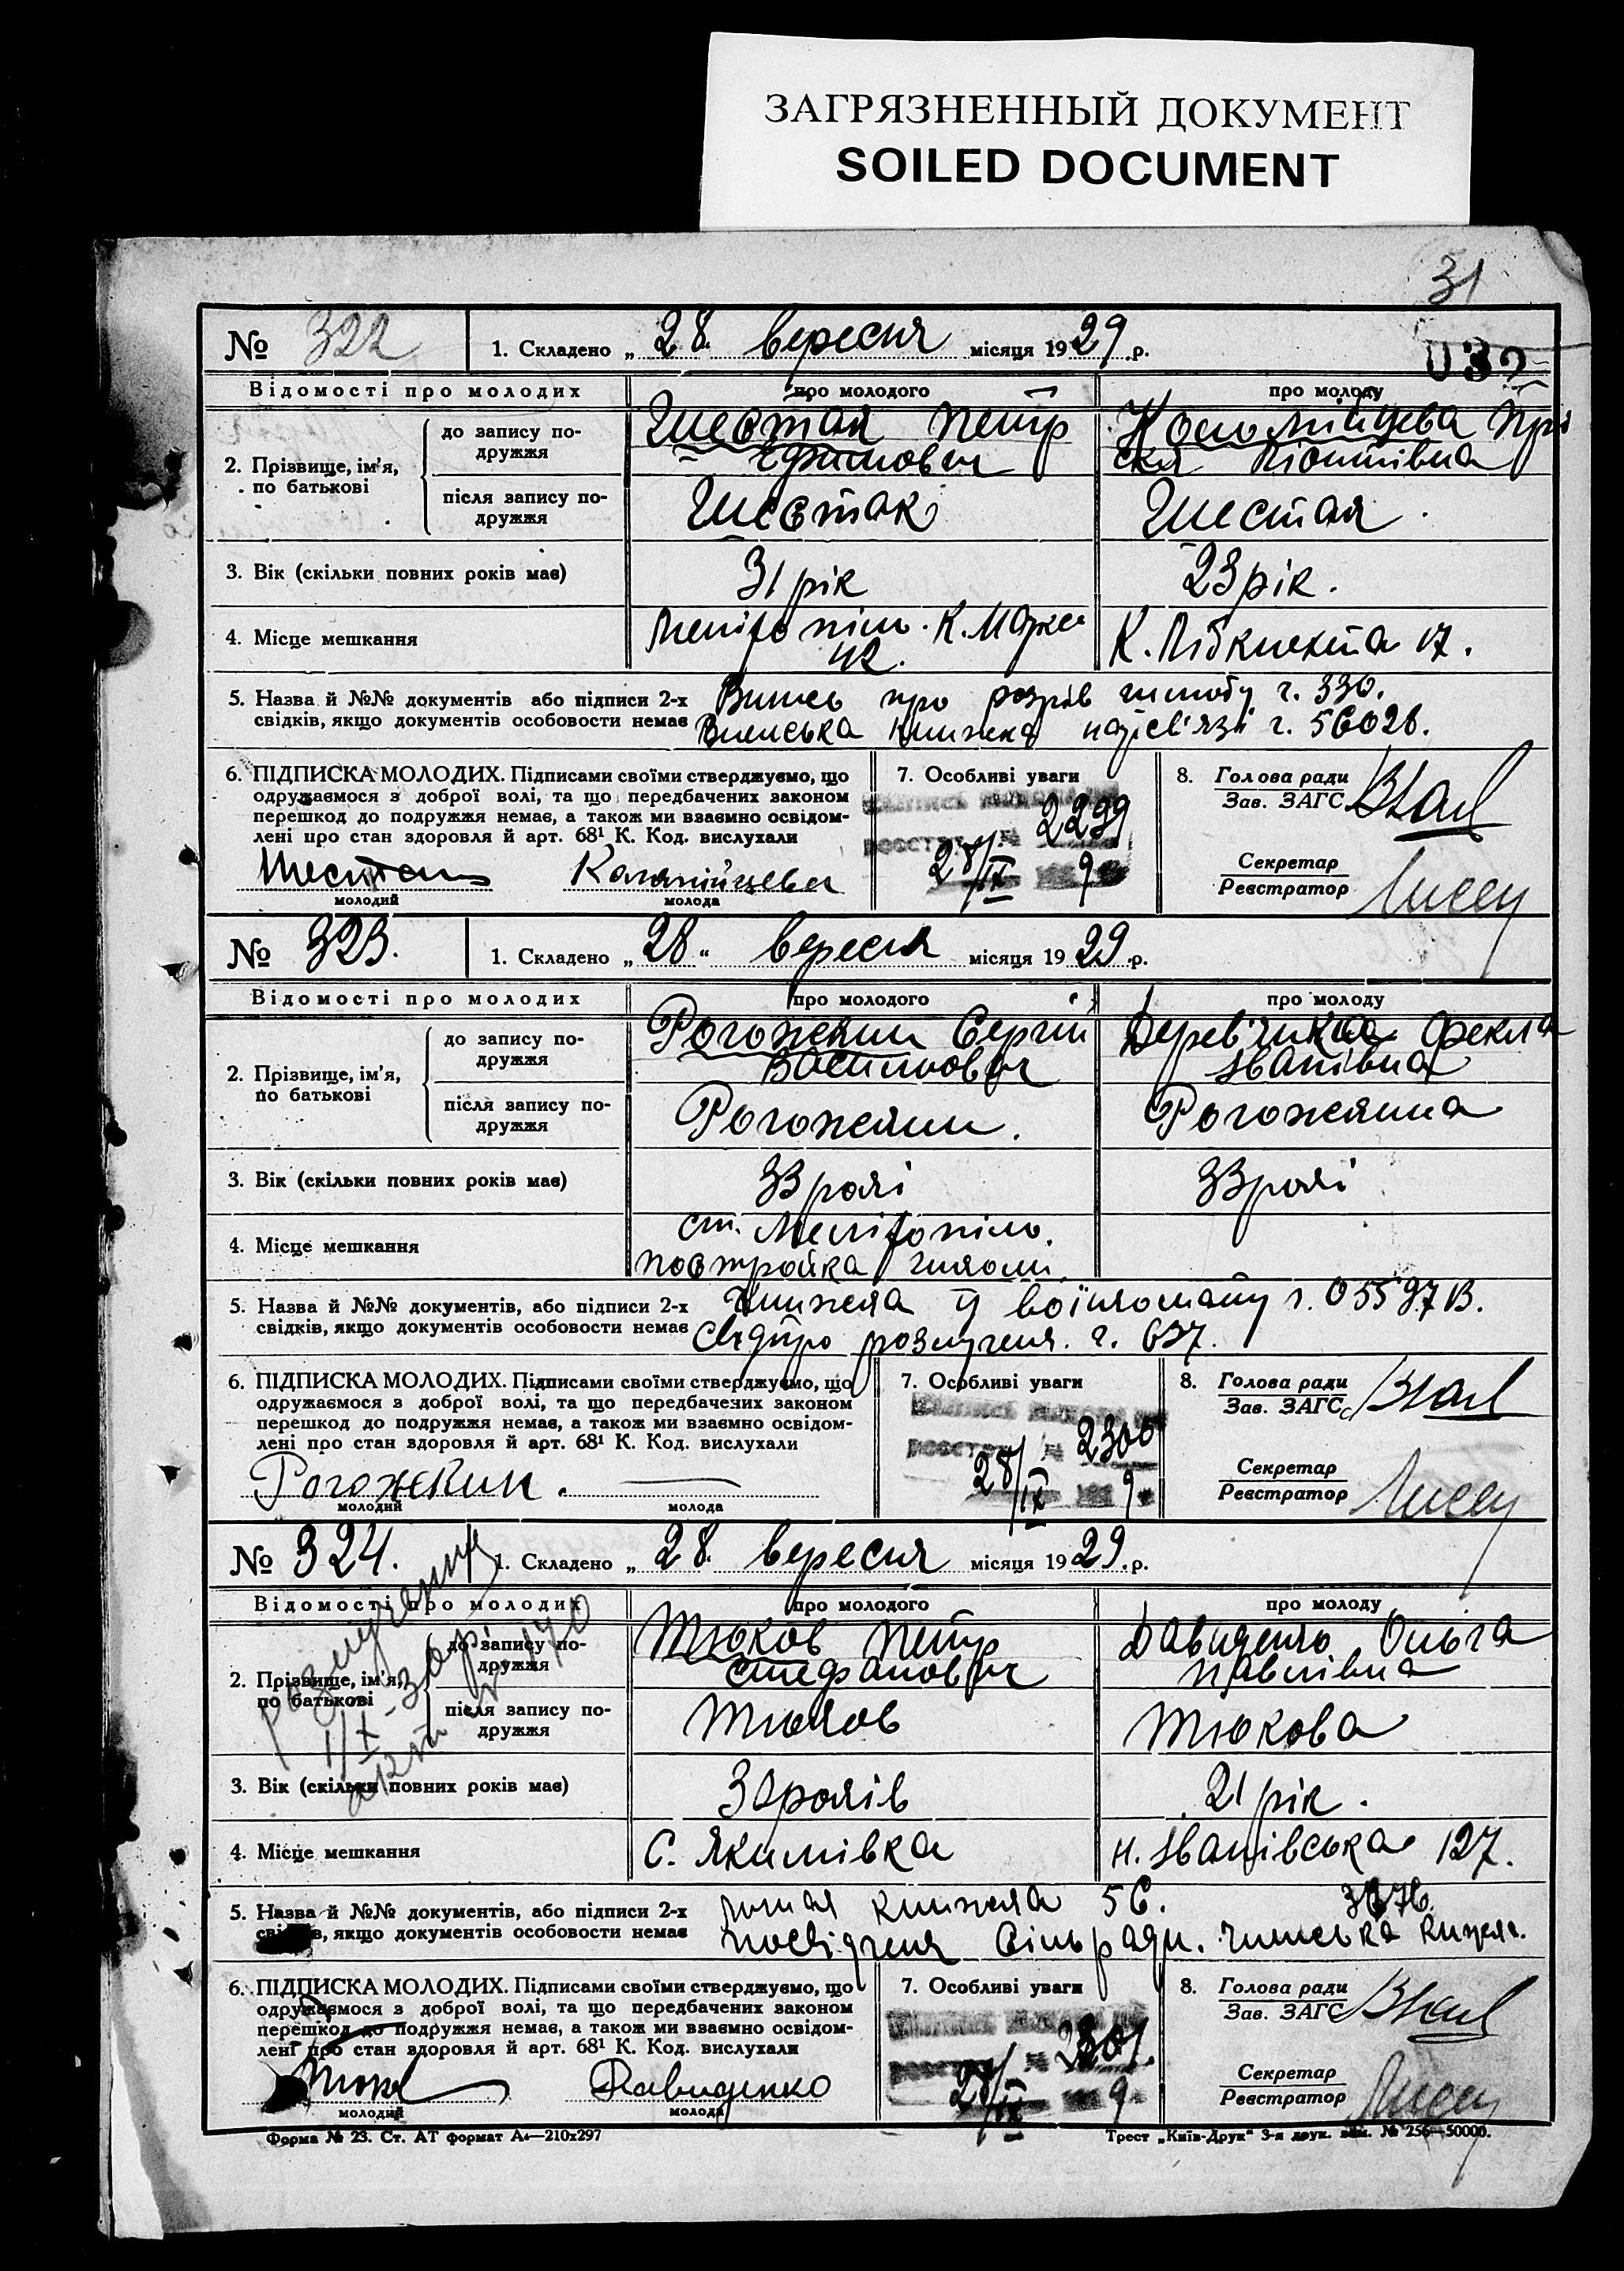 ЗАГРЯЗНЕННЫЙ ДОКУМЕНТ
SOILED DOCUMENT
31
032
№ 322
1. Складено „ 28. вересня місяця 1929 р.
Відомості про молодих
про молодого
про молоду
2. Прізвище, ім'я, по батькові
до запису подружжя
Петр
після запису подружжя
Шестак
Шестая
3. Вік (скільки повних років має)
31 рік
23 рік.
4. Місце мешкання
К. Маркса 42.
К. Лібкнехта 17.
5. Назва й №№ документів або підписи 2-х
свідків, якщо документів особовости немає
про розрів шлюбу ч. 330.
ч. 56026.
6. ПІДПИСКА МОЛОДИХ. Підписами своїми стверджуємо, що
одружаємося з доброї волі, та що передбачених законом
перешкод до подружжя немає, а також ми взаємно освідом-
лені про стан здоровля й арт. 68¹ К. Код. вислухали
молодий
молода
7. Особливі уваги
2299
28/IX 9
8. Голова ради
Зав. ЗАГС
Секретар
Реєстратор
№ 323.
1. Складено „ 28 " вересня місяця 1929 р.
Відомості про молодих
про молодого
про молоду
2. Прізвище, ім'я, по батькові
до запису подружжя
Рогожкин Сергій
Васильович
Фекла
Іванівна
після запису подружжя
Рогожкин.
Рогожкина
3. Вік (скільки повних років має)
33 роки
33 роки
4. Місце мешкання
ст. Мелітопіль.
5. Назва й №№ документів, або підписи 2-х
свідків, якщо документів особовости немає
Книжка
розлученя. ч. 637.
6. ПІДПИСКА МОЛОДИХ. Підписами своїми стверджуємо, що
одружаємося з доброї волі, та що передбачених законом
перешкод до подружжя немає, а також ми взаємно освідом-
лені про стан здоровля й арт. 68¹ К. Код. вислухали
Рогожкин.
молодий
молода
7. Особливі уваги
2300
28/IX 9
8. Голова ради
Зав. ЗАГС
Секретар
Реєстратор
№ 324.
1. Складено „ 28. вересня місяця 1929 р.
Відомості про молодих
про молодого
про молоду
2. Прізвище, ім'я, по батькові
до запису подружжя
Тюков Петр
Стефанович
Давиденко Ольга
Павлівна
після запису подружжя
Тюков
Тюкова
3. Вік (скільки повних років має)
30 років
21 рік.
4. Місце мешкання
С. Якимівка
Н. Іванівська 127.
5. Назва й №№ документів, або підписи 2-х
свідків, якщо документів особовости немає
книжка 56.
посвідченя Сільради.
6. ПІДПИСКА МОЛОДИХ. Підписами своїми стверджуємо, що
одружаємося з доброї волі, та що передбачених законом
перешкод до подружжя немає, а також ми взаємно освідом-
лені про стан здоровля й арт. 68¹ К. Код. вислухали
Давиденко
молодий
молода
7. Особливі уваги
2301.
28/IX 9
8. Голова ради
Зав. ЗАГС
Секретар
Реєстратор
Форма № 23. Ст. АТ формат А₄—210х297
Трест „Київ-Друк" 3-я друк. зам. № 256—50000.